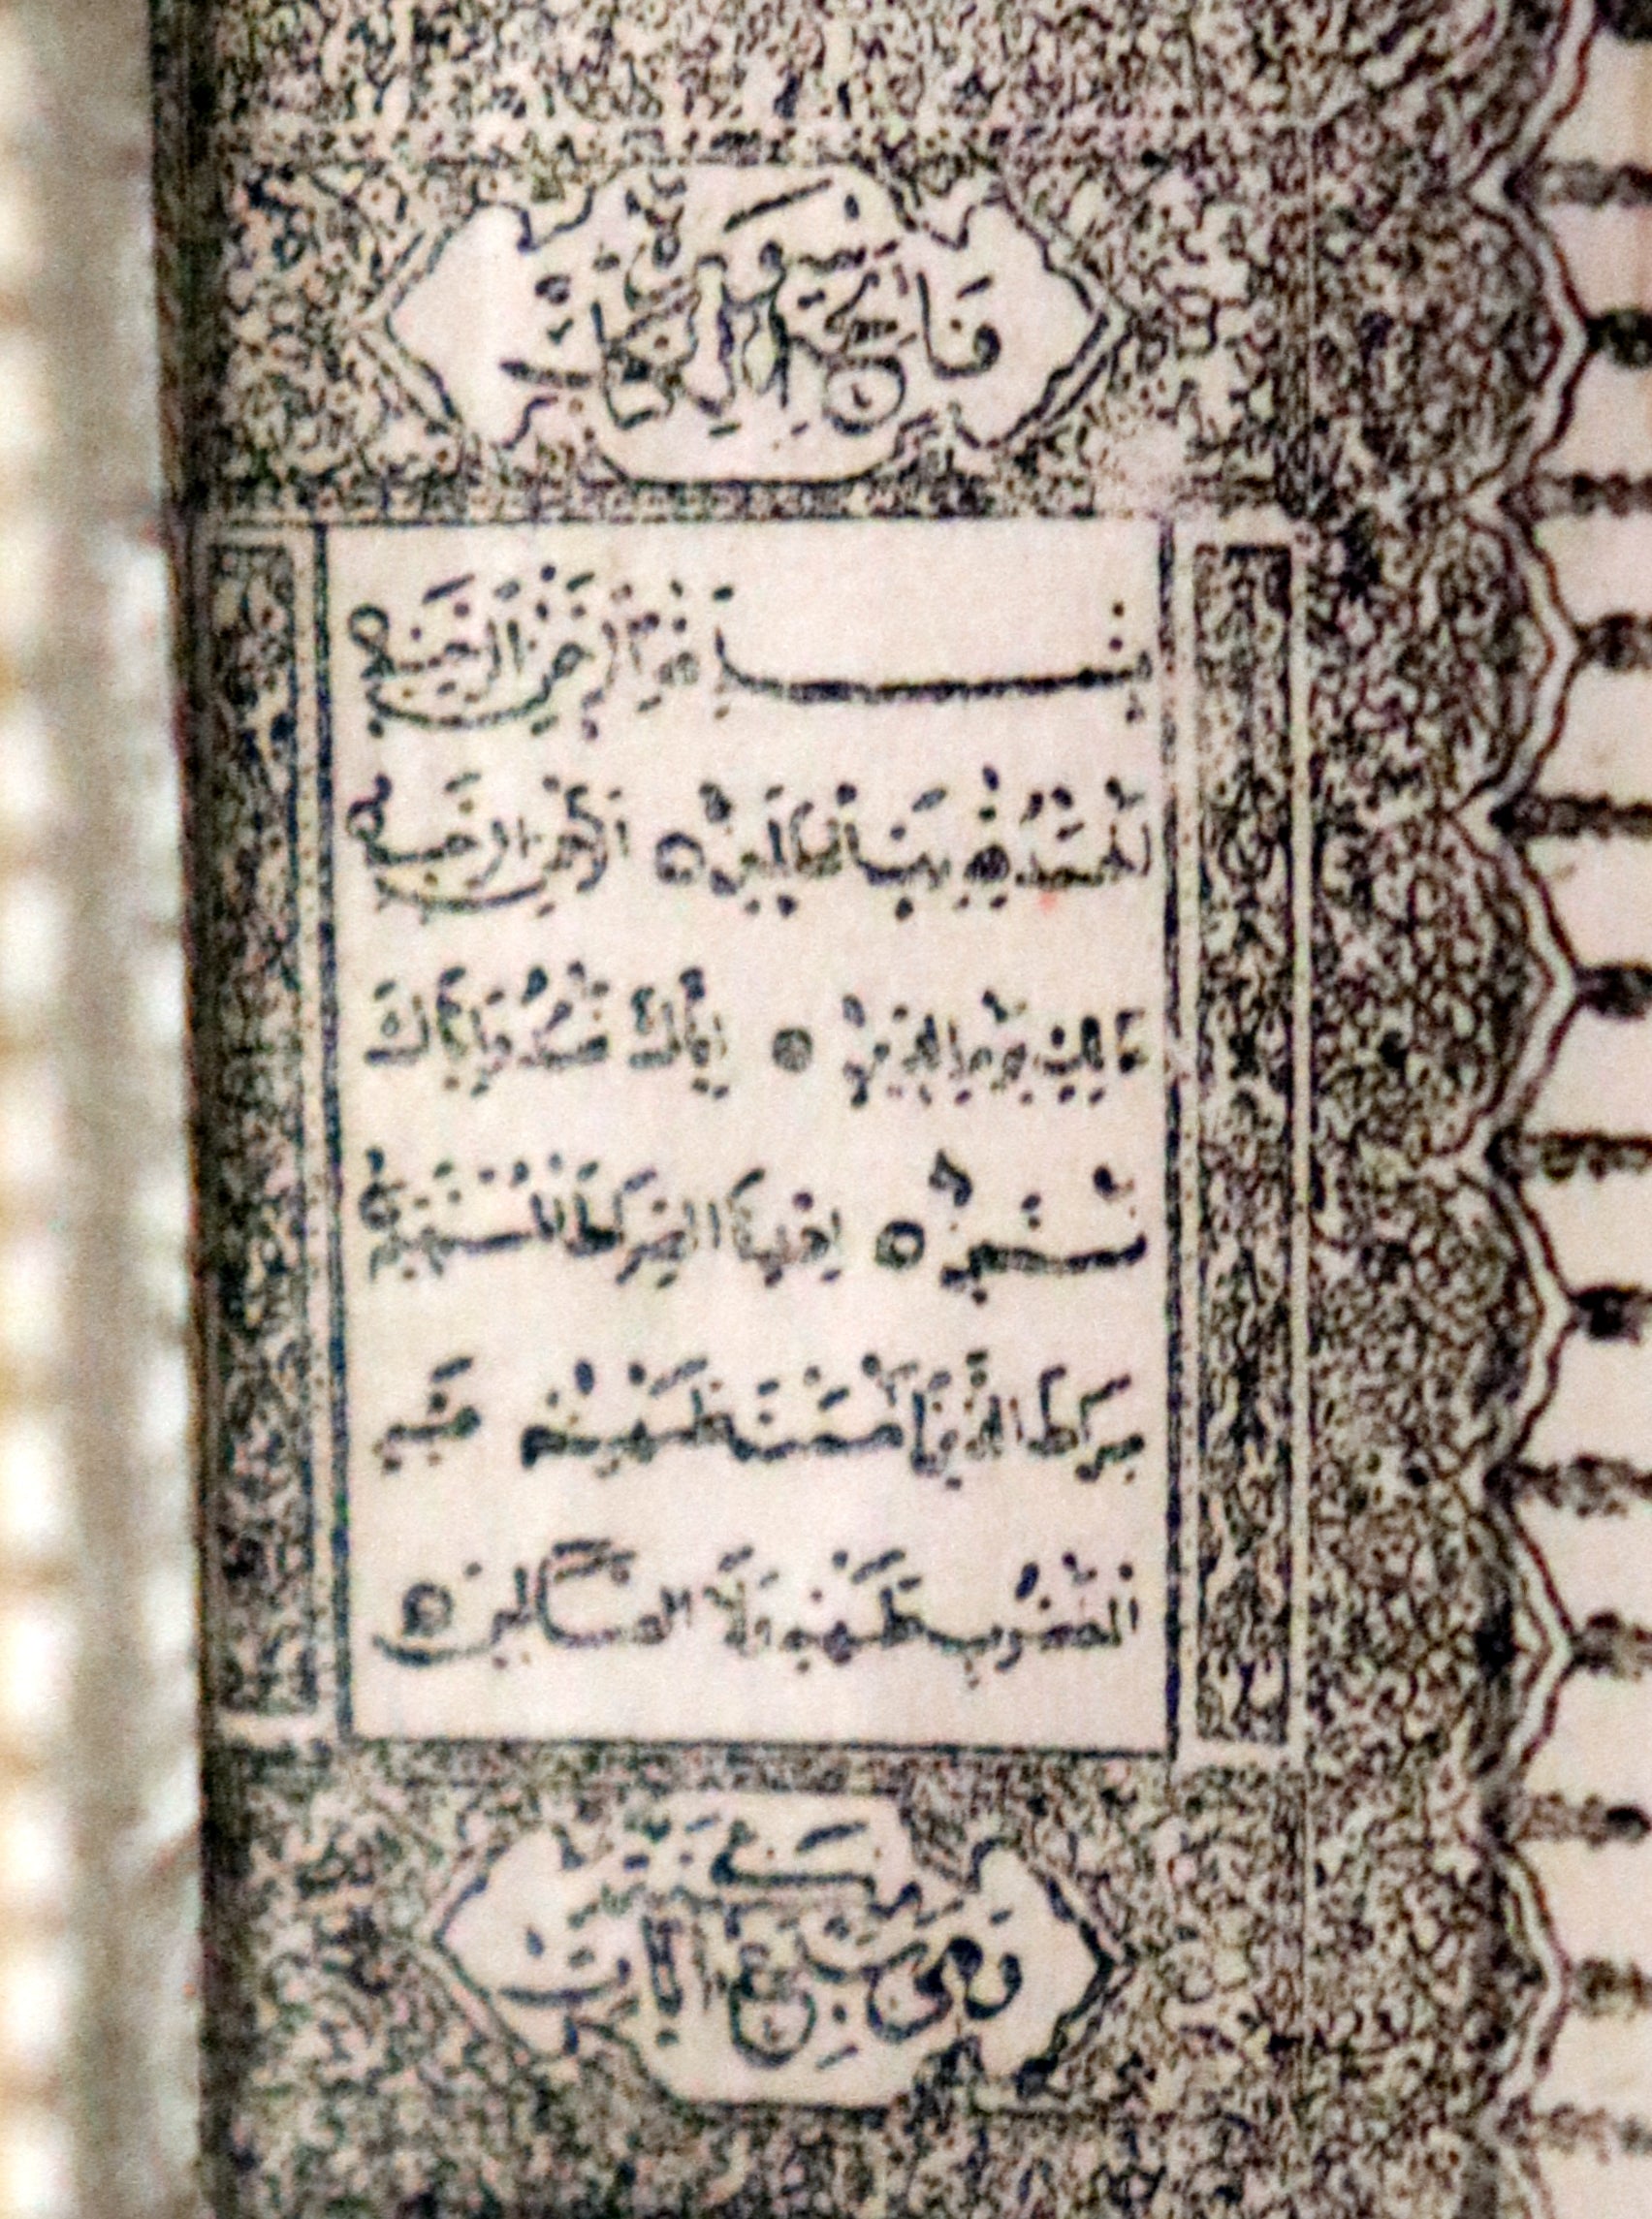 سورة
فاتحة الكتاب
بسم الله الرحمن الرحيم
الحمد لله رب العالمين الرحمن الرحيم
مالك يوم الدين اياك نعبد واياك
نستعين اهدنا الصراط المستقيم
صراط الذين انعمت عليهم غير
المغضوب عليهم ولا الضالين
مكية
وهي سبع ايات